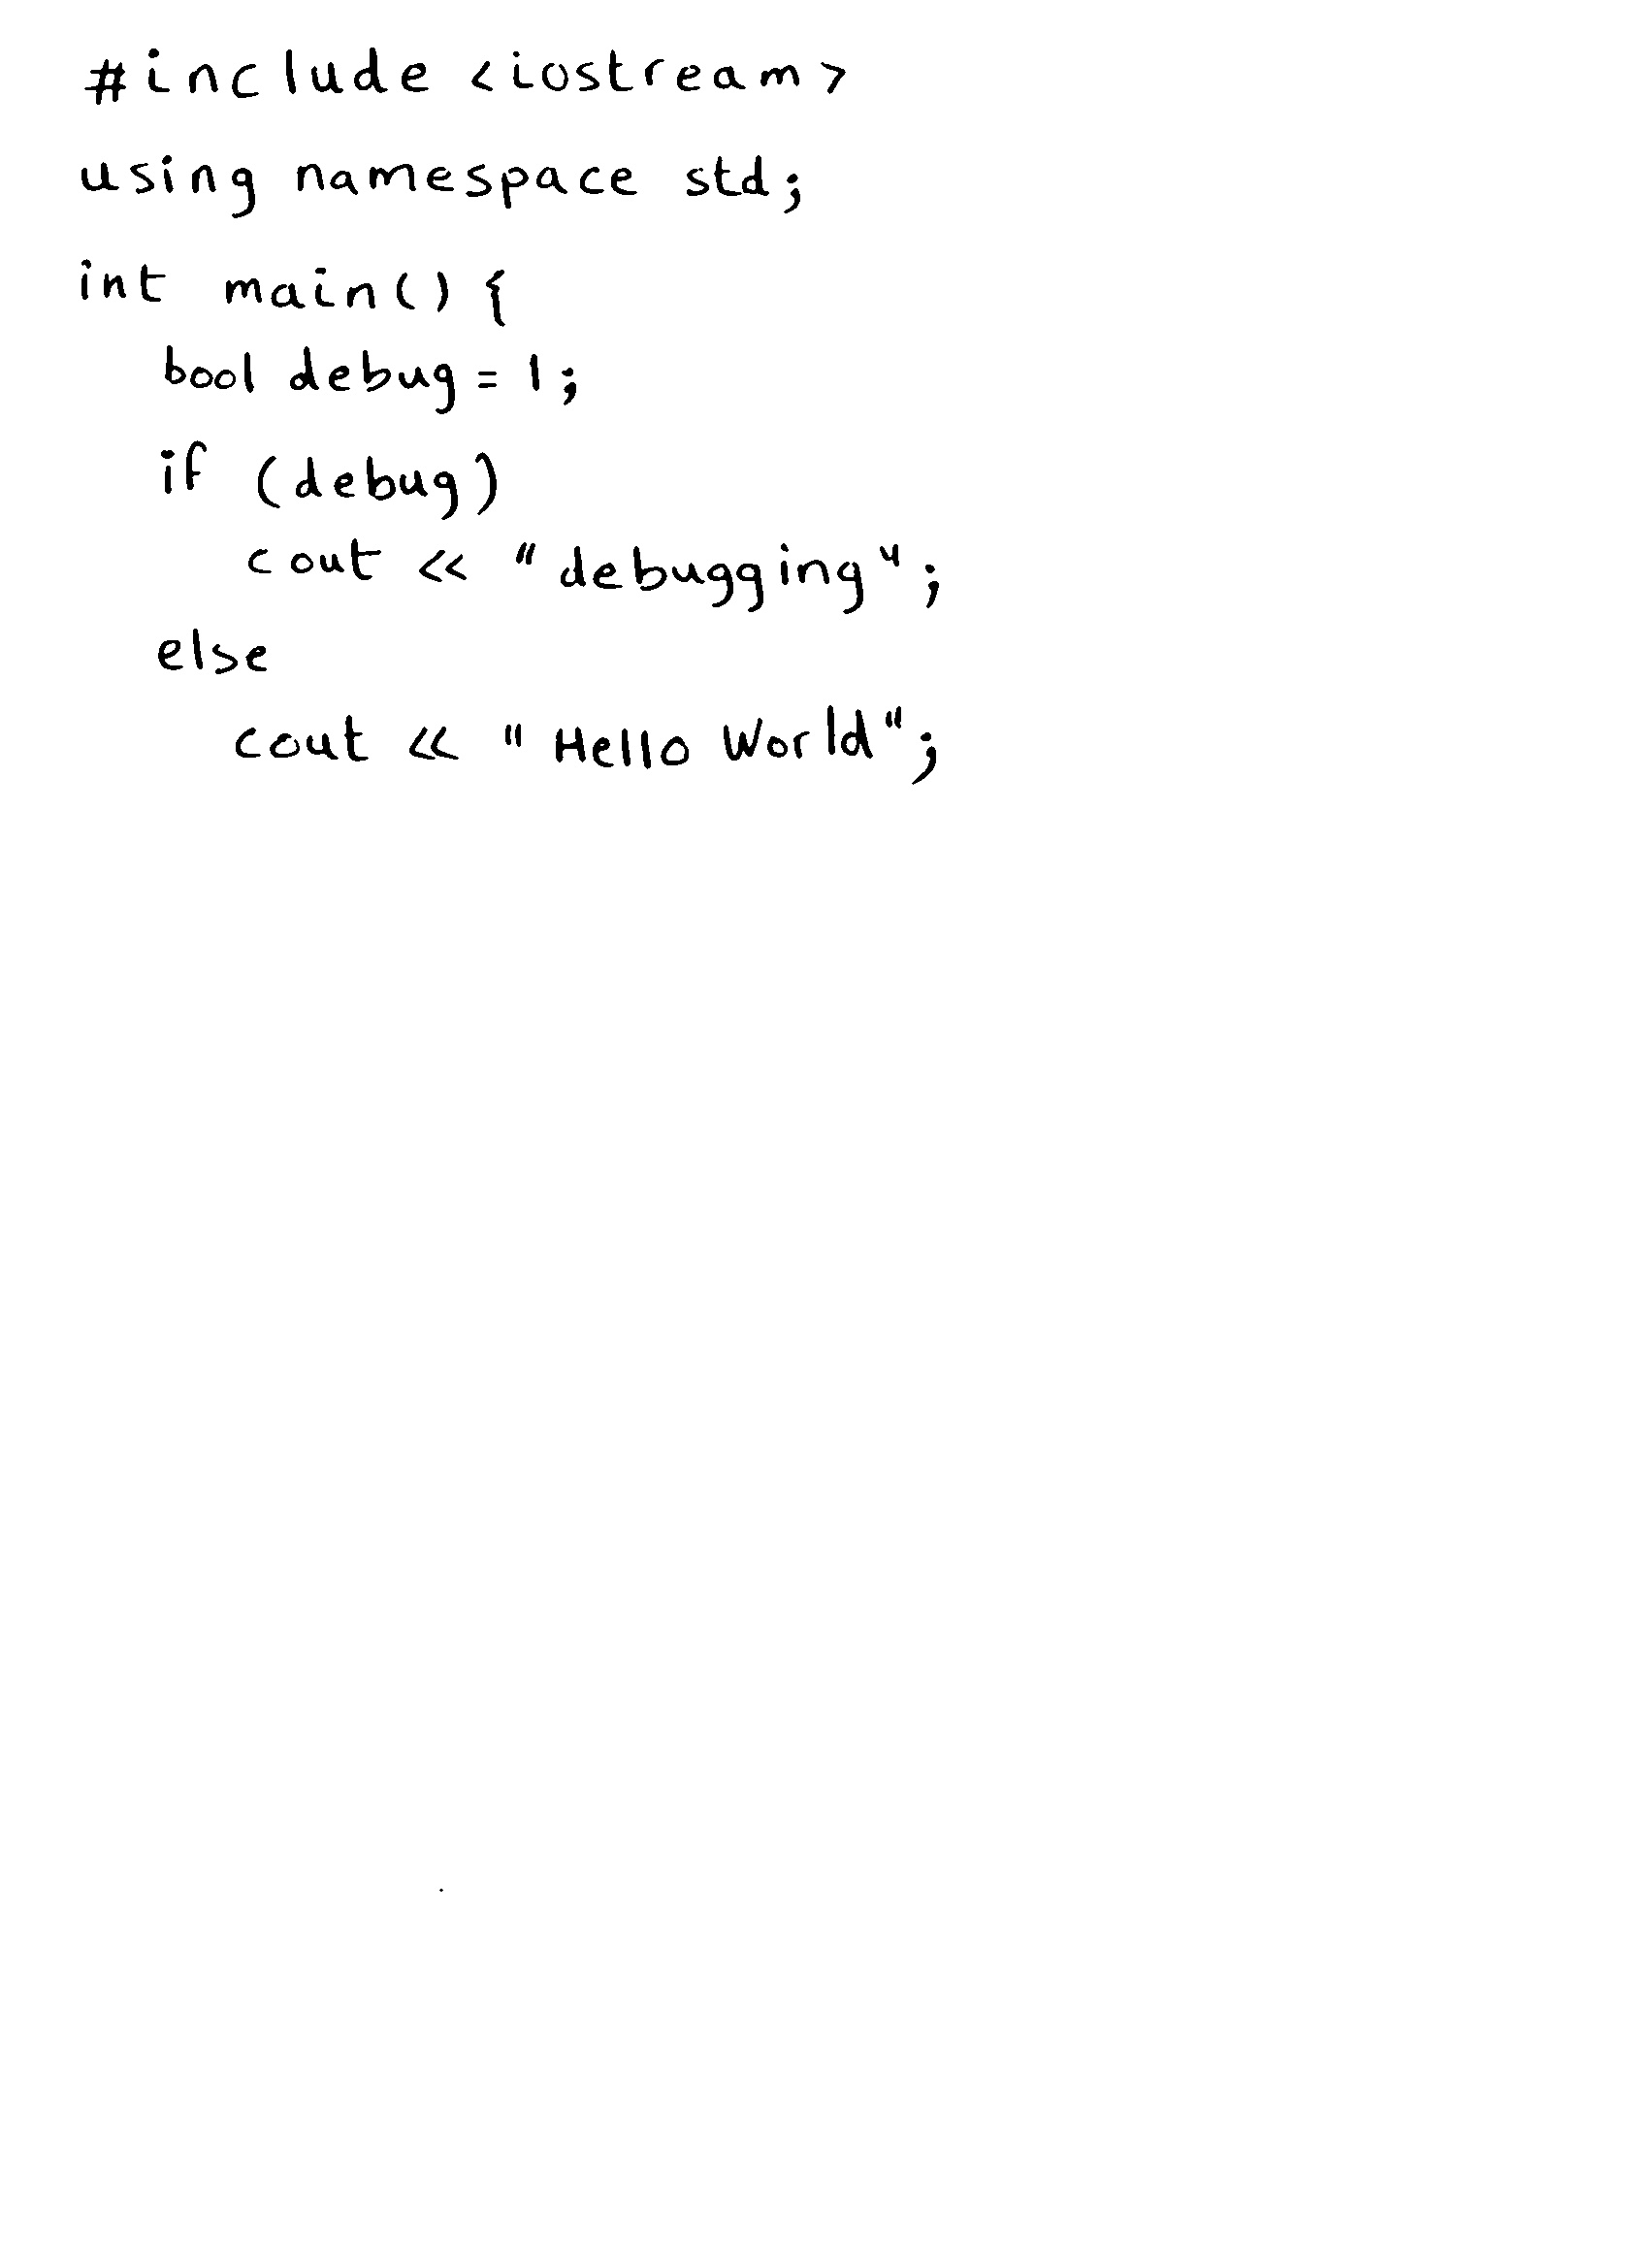 #include <iostream>
using namespace std;
int main() {
bool debug = 1;
if (debug)
cout << "debugging";
else
cout << "Hello World";